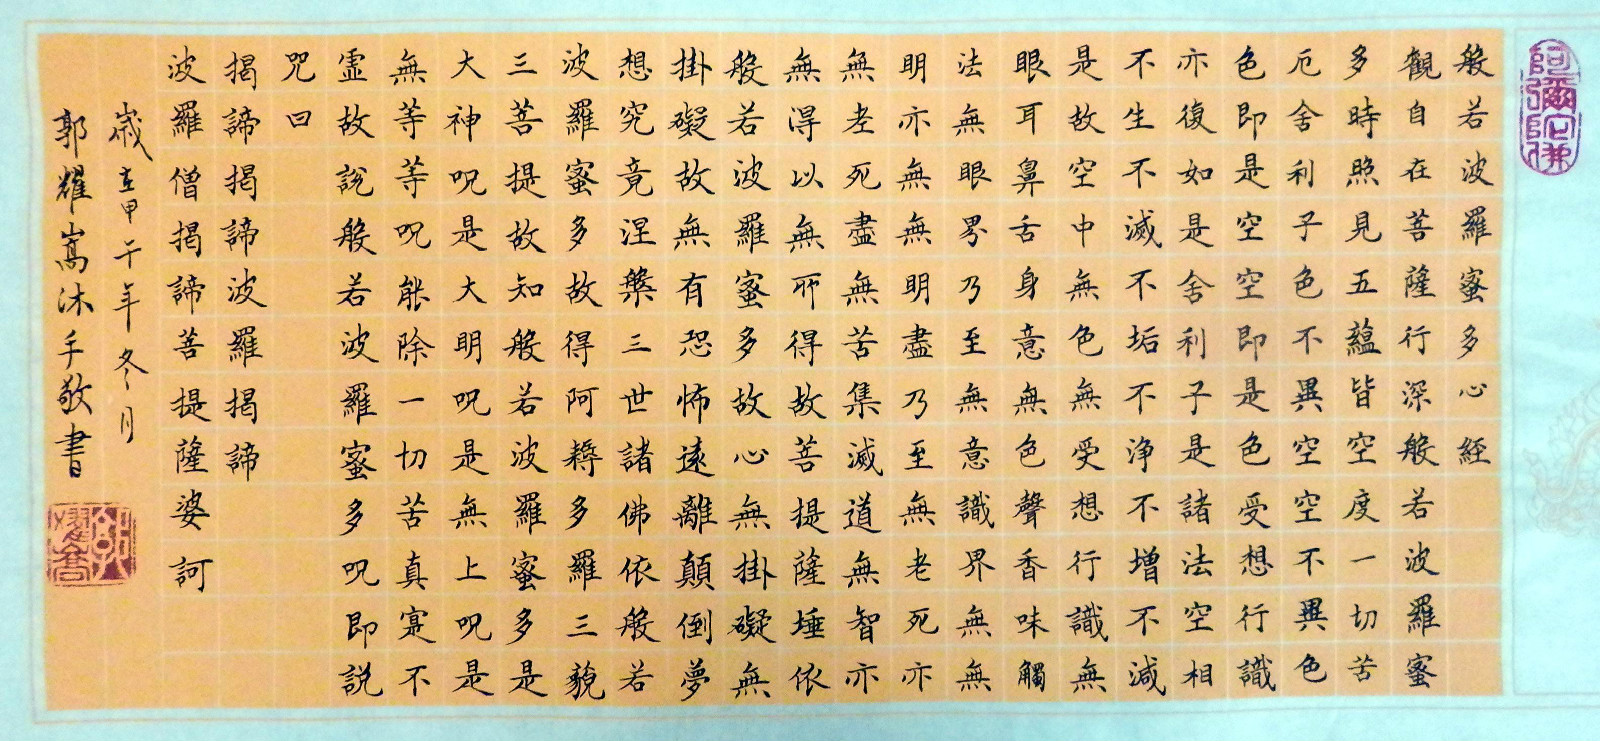 阿彌陀佛
般若波羅蜜多心經
觀自在菩薩行深般若波羅蜜
多時照見五蘊皆空度一切苦
厄舍利子色不異空空不異色
色即是空空即是色受想行識
亦復如是舍利子是諸法空相
不生不滅不垢不淨不增不減
是故空中無色無受想行識無
眼耳鼻舌身意無色聲香味觸
法無眼界乃至無意識界無無
明亦無無明盡乃至無老死亦
無老死盡無苦集滅道無智亦
無得以無所得故菩提薩埵依
般若波羅蜜多故心無掛礙無
掛礙故無有恐怖遠離顛倒夢
想究竟涅槃三世諸佛依般若
波羅蜜多故得阿耨多羅三藐
三菩提故知般若波羅蜜多是
大神咒是大明咒是無上咒是
無等等咒能除一切苦真實不
虛故說般若波羅蜜多咒即說
咒曰
揭諦揭諦波羅揭諦
波羅僧揭諦菩提薩婆訶
歲在甲午年冬月
郭耀嵩沐手敬書